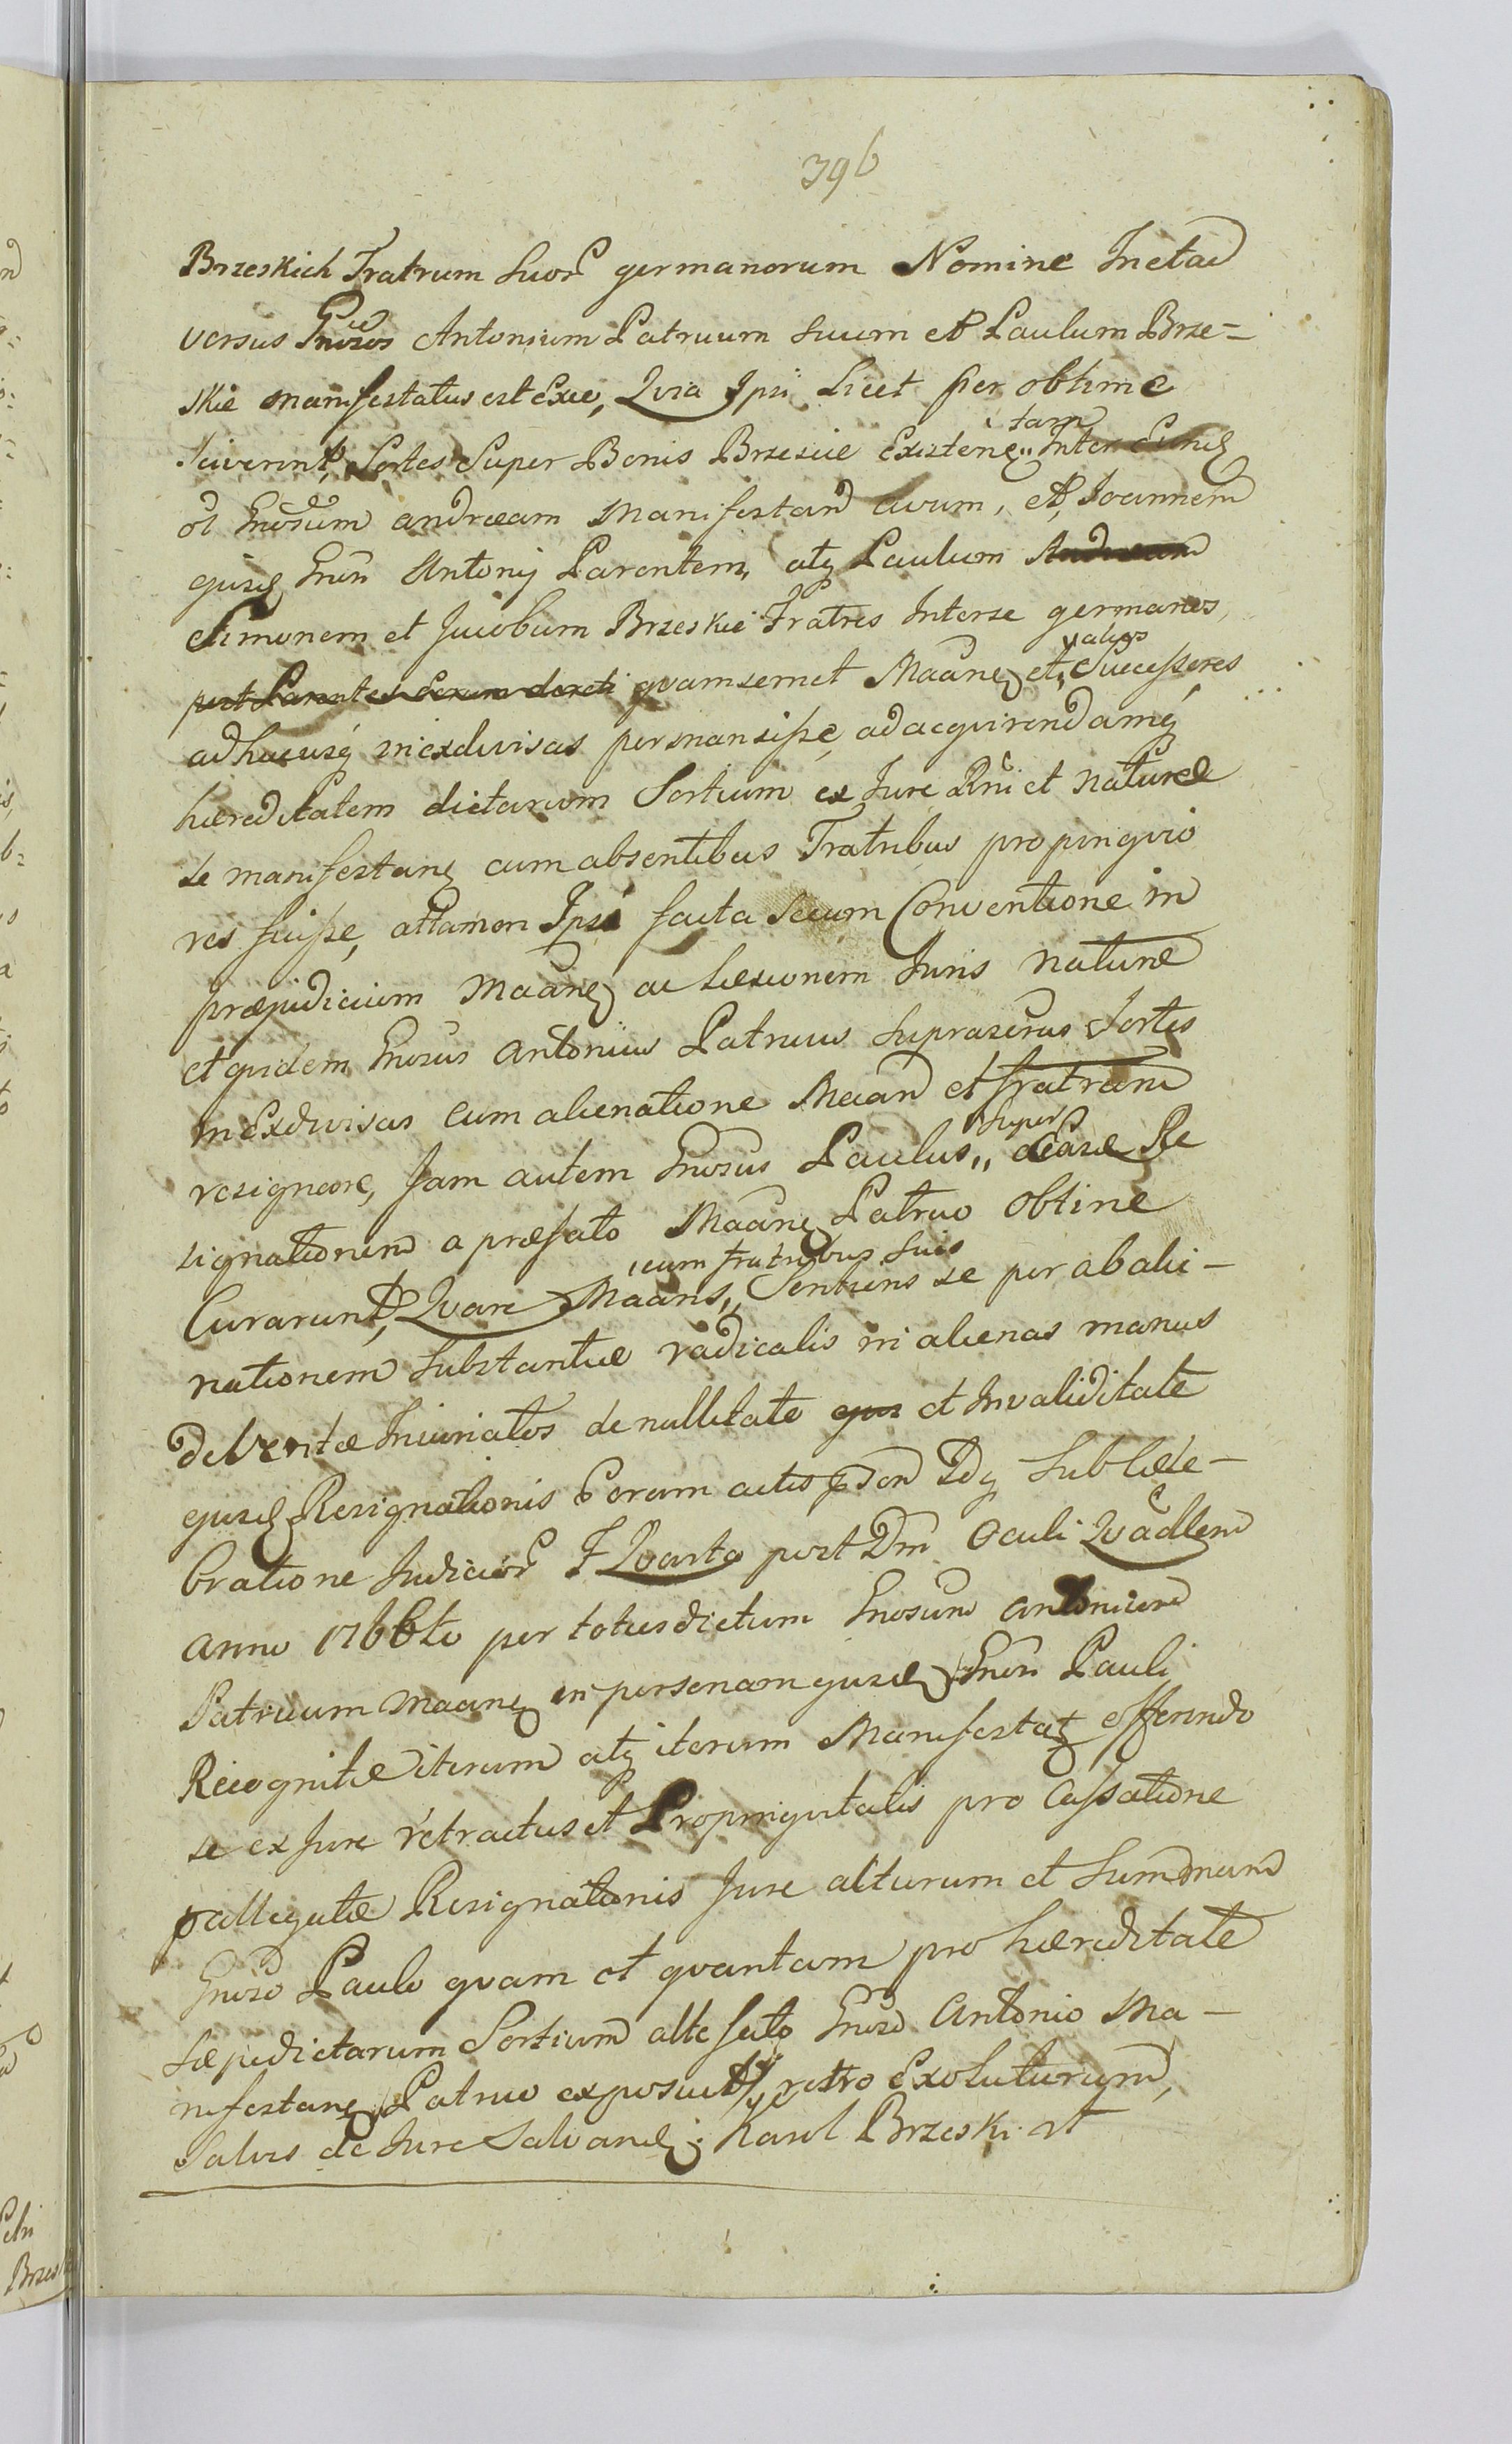 396
Brzeskich Fratrum Suor germanorum Nomine In et ad
versus Gnosos Antonium Patruum suum et Paulum Brze-
skie manifestatus est Exce, Qvia Ipsi Licet per optime
sciverint, Sortes Super Bonis Brzescie Existen tam Inter Eund
ol Gnosum andream Manifestand avum, et, Joannem
ejusd Gnosi Antonij Parentem, atq Paulum
Simonem et Jacobum Brzeskie Fratres Interse germanos,
post Parentes Eorum qvamsemet Maane et aliqos Successores
adhucusq inexdivisas permansisse, ad acqvirendamq
hæreditatem dictarum Sortium ex Jure Rni et naturæ
se manifestane cum absentibus Fratribus propinqvio
res fuisse, attamen Ipsi facta Secum Conventione in
præjudicium Maane ac Læsionem Juris naturæ
et qvidem Gnosus Antonius Patruus suprascras Sortes
inExdivisas cum alienatione Maan et fratrum
resignare, Jam autem Gnosus Paulus super Re
signationem a præfato Maane Patruo obtine
Curarunt, Qvare Maans cum fratribus suis Sentiens se per abali-
nationem Substantiæ radicalis in alienas manus
deventæ Iniuriatos de nullitate ejus et Invaliditate
ejusd Resignationis Coram actis Sub Cele-
bratione Judicior F Qvarta post Dm Oculi Qvadlem
anno 1766to per totiesdictum Gnosum antonium
Patruum Maane in personam ejusd Gnosi Pauli
Recognitæ iterum atq iterum Manifestat offerendo
se ex Jure retractus et Propinqvitatis pro Cassatione
pallegatæ Resignationis Jure acturum et Summam
Gnoso Paulo qvam et qvantam pro hæreditate
sæpedictarum Sortium alte fato Gnoso Antonio Ma-
nifestane Patruo exposuit, retro Exoluturum,
Salvis de Jure Salvand. Karol Brzeski